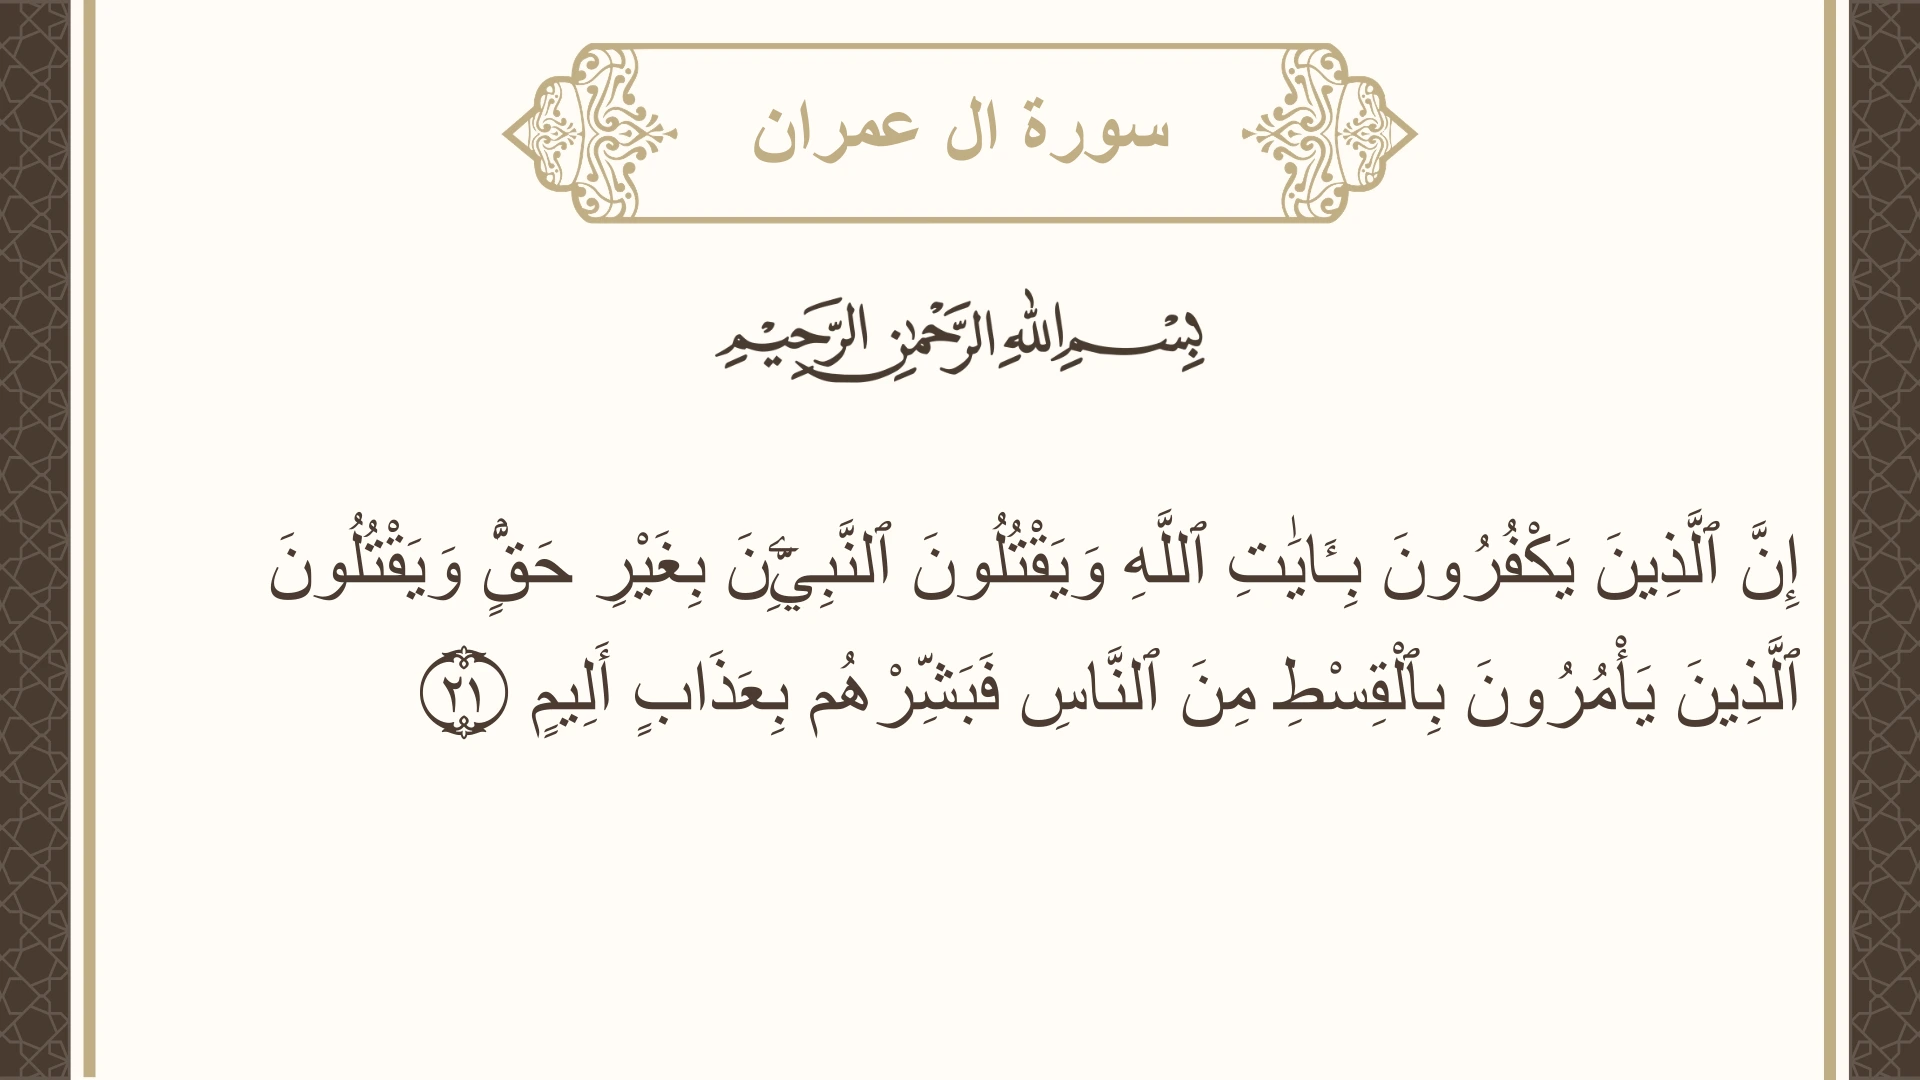 سورة ال عمران
بِسْمِ اللهِ الرَّحْمٰنِ الرَّحِيْمِ
إِنَّ ٱلَّذِينَ يَكْفُرُونَ بِـَٔايَـٰتِ ٱللَّهِ وَيَقْتُلُونَ ٱلنَّبِيِّـۧنَ بِغَيْرِ حَقٍّۢ وَيَقْتُلُونَ
ٱلَّذِينَ يَأْمُرُونَ بِٱلْقِسْطِ مِنَ ٱلنَّاسِ فَبَشِّرْهُم بِعَذَابٍ أَلِيمٍ ٢١